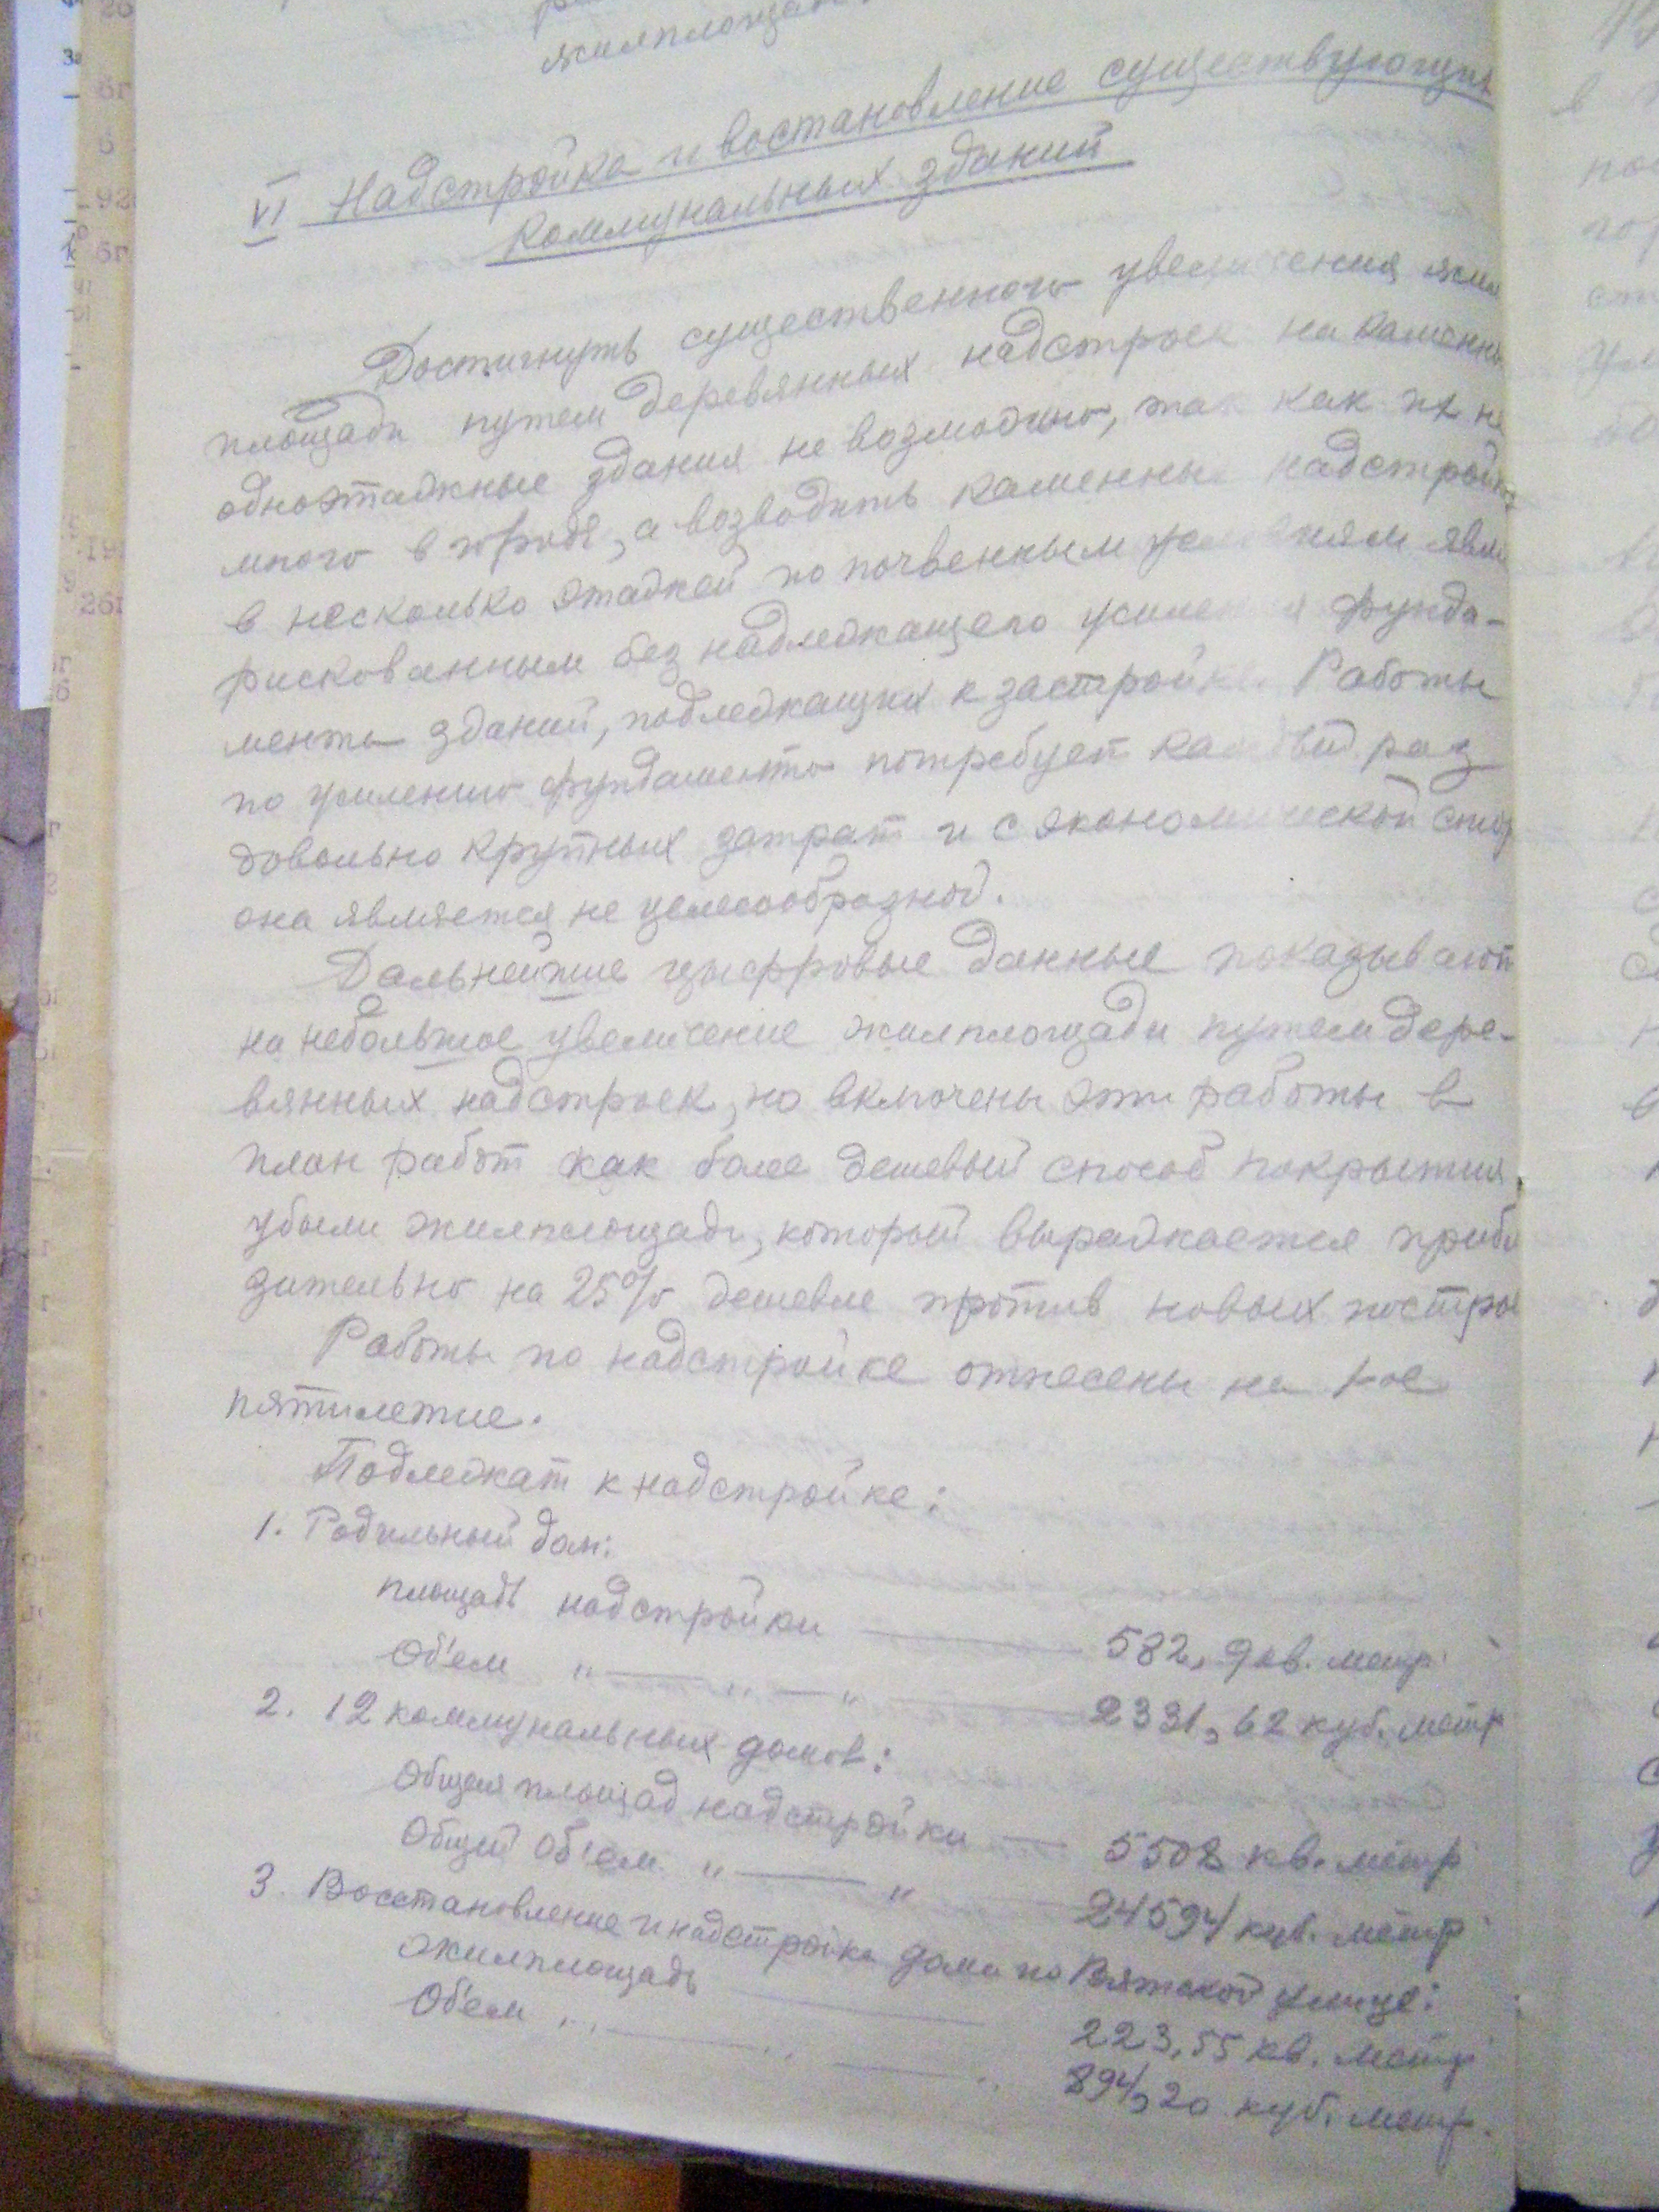 жилплощад
VI Надстройка и востановление существующих
коммунальных зданий
Достигнуть существенного увеличения жил
площади путем деревянных надстроек на каменны
одноэтажные здания не возможно, так как их не
много в городе, а возводить каменные надстройки
в несколько этажей по почвенным условиям явл
рискованным без надлежащего усиления фунда-
мента зданий, подлежащих к застройке. Работы
по усилению фундамента потребует каждый раз
довольно крупных затрат и с экономической стор
она является не целесообразной.
Дальнейшие цыфровые данные показывают
на небольшое увеличение жилплощади путем дере-
вянных надстроек, но включены эти работы в
план работ как более дешевый способ покрытия
убыли жилплощади, который выражается прибл
зительно на 25% дешевле против новых постро
Работы по надстройке отнесены на 1-ое
пятилетие.
Подлежат к надстройке:
1. Родильный дом:
площадь надстройки — 582,9 кв. метр
Об'ем " — " — " — 2331,62 куб. метр
2. 12 коммунальных домов:
Общая площад надстройки — 5508 кв. метр
Общий об'ем " — " — 24594 куб. метр
3. Восстановление и надстройка дома по Вятской улице:
жилплощадь — 223,55 кв. метр
Об'ем " — " — " 894,20 куб. метр.